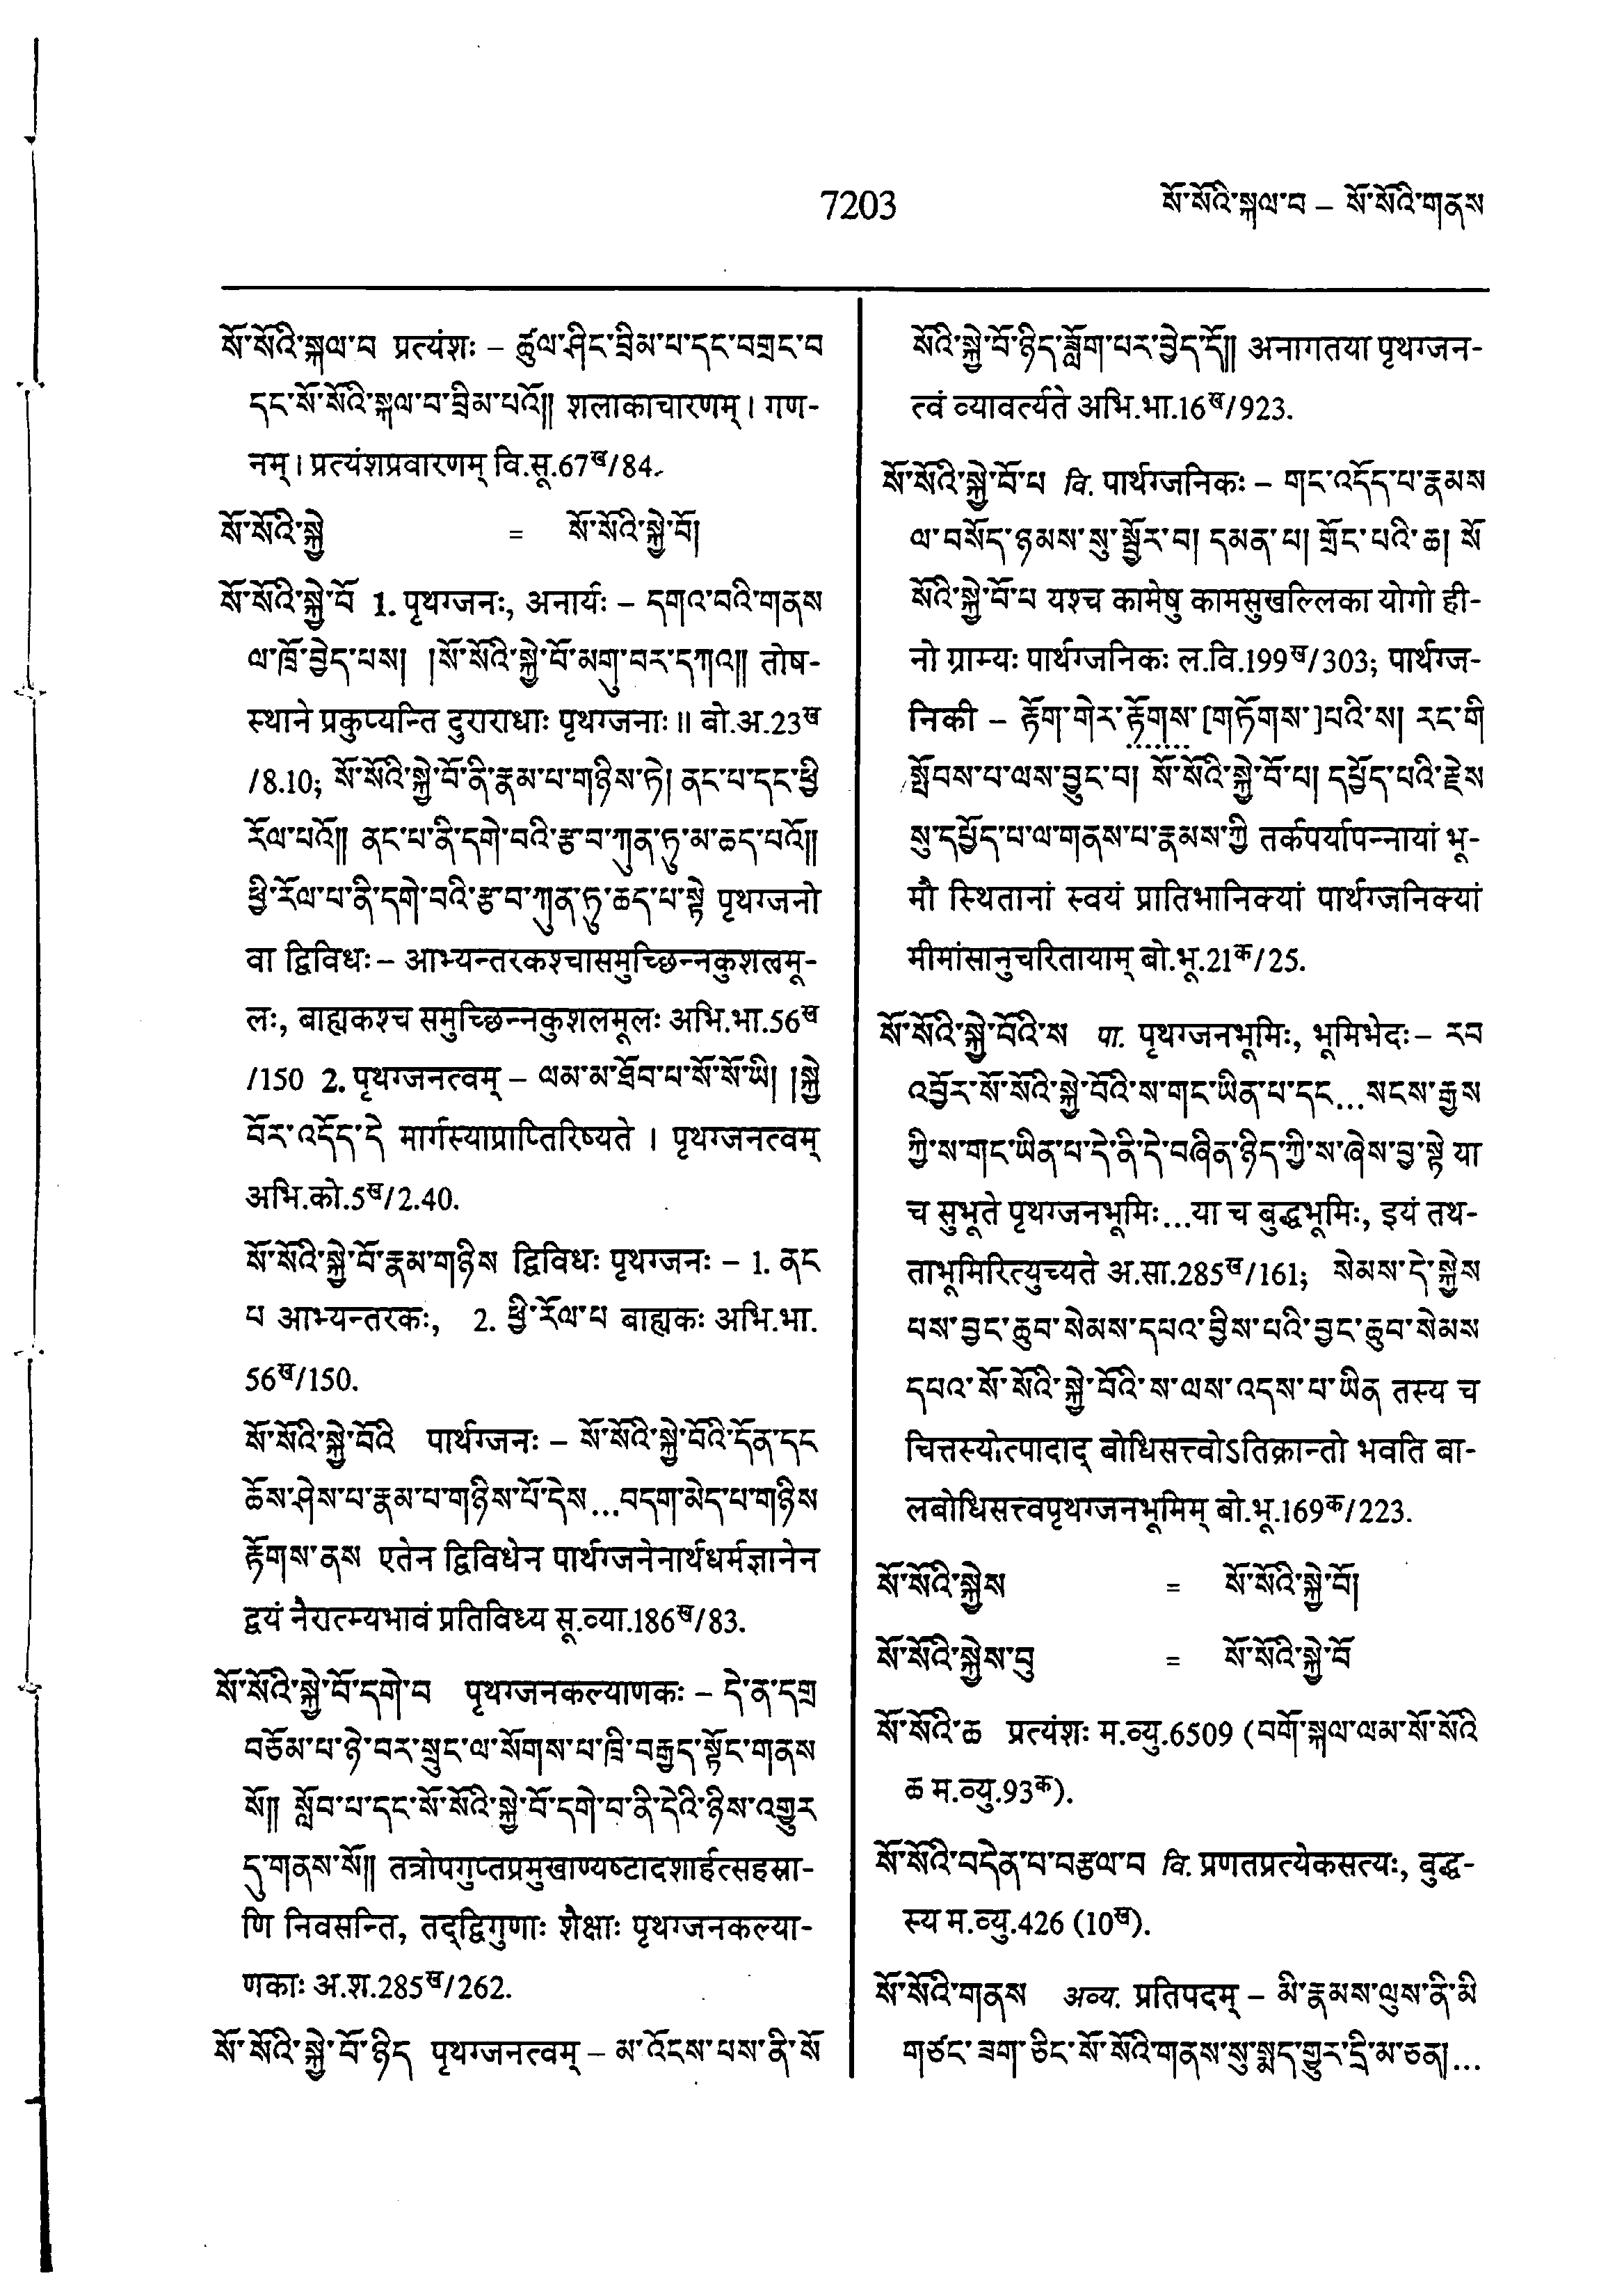 7203
སོ་སོའི་སྐལ་བ – སོ་སོའི་གནས
སོ་སོའི་སྐལ་བ प्रत्यंशः – ཚུལ་ཤིང་བྲིམ་པ་དང་བགྲང་བ
དང་སོ་སོའི་སྐལ་བ་བྲིམ་པའོ།། शलाकाचारणम् । गण-
नम् । प्रत्यंशप्रवारणम् वि.सू.67ख/84.
སོ་སོའི་སྐྱེ = སོ་སོའི་སྐྱེ་བོ།
སོ་སོའི་སྐྱེ་བོ 1. पृथग्जनः, अनार्यः – དགའ་བའི་གནས
ལ་ཁྲོ་བྱེད་པས། །སོ་སོའི་སྐྱེ་བོ་མགུ་བར་དཀའ།། तोष-
स्थाने प्रकुप्यन्ति दुराराधाः पृथग्जनाः ॥ बो.अ.23ख
/8.10; སོ་སོའི་སྐྱེ་བོ་ནི་རྣམ་པ་གཉིས་ཏེ། ནང་པ་དང་ཕྱི
རོལ་པའོ།། ནང་པ་ནི་དགེ་བའི་རྩ་བ་ཀུན་ཏུ་མ་ཆད་པའོ།།
ཕྱི་རོལ་པ་ནི་དགེ་བའི་རྩ་བ་ཀུན་ཏུ་ཆད་པ་སྟེ पृथग्जनो
वा द्विविधः – आभ्यन्तरकश्चासमुच्छिन्नकुशलमू-
लः, बाह्यकश्च समुच्छिन्नकुशलमूलः अभि.भा.56ख
/150 2. पृथग्जनत्वम् – ལམ་མ་ཐོབ་པ་སོ་སོ་ཡི། །སྐྱེ
བོར་འདོད་དེ मार्गस्याप्राप्तिरिष्यते । पृथग्जनत्वम्
अभि.को.5ख/2.40.
སོ་སོའི་སྐྱེ་བོ་རྣམ་གཉིས द्विविधः पृथग्जनः – 1. ནང
པ आभ्यन्तरकः, 2. ཕྱི་རོལ་པ बाह्यकः अभि.भा.
56ख/150.
སོ་སོའི་སྐྱེ་བོའི पार्थग्जनः – སོ་སོའི་སྐྱེ་བོའི་དོན་དང
ཆོས་ཤེས་པ་རྣམ་པ་གཉིས་པོ་དེས...བདག་མེད་པ་གཉིས
རྟོགས་ནས एतेन द्विविधेन पार्थग्जनेनार्थधर्मज्ञानेन
द्वयं नैरात्म्यभावं प्रतिविध्य सू.व्या.186ख/83.
སོ་སོའི་སྐྱེ་བོ་དགེ་བ पृथग्जनकल्याणकः – དེ་ན་དགྲ
བཅོམ་པ་ཉེ་བར་སྲུང་ལ་སོགས་པ་ཁྲི་བརྒྱད་སྟོང་གནས
སོ།། སློབ་པ་དང་སོ་སོའི་སྐྱེ་བོ་དགེ་བ་ནི་དེའི་ཉིས་འགྱུར
དུ་གནས་སོ།། तत्रोपगुप्तप्रमुखाण्यष्टादशार्हत्सहस्रा-
णि निवसन्ति, तद्द्विगुणाः शैक्षाः पृथग्जनकल्या-
णकाः अ.श.285ख/262.
སོ་སོའི་སྐྱེ་བོ་ཉིད पृथग्जनत्वम् – མ་འོངས་པས་ནི་སོ
སོའི་སྐྱེ་བོ་ཉིད་བློག་པར་བྱེད་དོ།། अनागतया पृथग्जन-
त्वं व्यावर्त्यते अभि.भा.16ख/923.
སོ་སོའི་སྐྱེ་བོ་པ वि. पार्थग्जनिकः – གང་འདོད་པ་རྣམས
ལ་བསོད་ཉམས་སུ་སྦྱོར་བ། དམན་པ། གྲོང་པའི་ཆ། སོ
སོའི་སྐྱེ་བོ་པ यश्च कामेषु कामसुखल्लिका योगो ही-
नो ग्राम्यः पार्थग्जनिकः ल.वि.199ख/303; पार्थग्ज-
निकी – རྟོག་གེར་རྟོགས་[གཏོགས་]པའི་ས། རང་གི
སྤོབས་པ་ལས་བྱུང་བ། སོ་སོའི་སྐྱེ་བོ་པ། དཔྱོད་པའི་རྗེས
སུ་དཔྱོད་པ་ལ་གནས་པ་རྣམས་ཀྱི तर्कपर्यापन्नायां भू-
मौ स्थितानां स्वयं प्रातिभानिक्यां पार्थग्जनिक्यां
मीमांसानुचरितायाम् बो.भू.21क/25.
སོ་སོའི་སྐྱེ་བོའི་ས पा. पृथग्जनभूमिः, भूमिभेदः – རབ
འབྱོར་སོ་སོའི་སྐྱེ་བོའི་ས་གང་ཡིན་པ་དང...སངས་རྒྱས
ཀྱི་ས་གང་ཡིན་པ་དེ་ནི་དེ་བཞིན་ཉིད་ཀྱི་ས་ཞེས་བྱ་སྟེ या
च सुभूते पृथग्जनभूमिः...या च बुद्धभूमिः, इयं तथ-
ताभूमिरित्युच्यते अ.सा.285ख/161; སེམས་དེ་སྐྱེས
པས་བྱང་ཆུབ་སེམས་དཔའ་བྱིས་པའི་བྱང་ཆུབ་སེམས
དཔའ་སོ་སོའི་སྐྱེ་བོའི་ས་ལས་འདས་པ་ཡིན तस्य च
चित्तस्योत्पादाद् बोधिसत्त्वोऽतिक्रान्तो भवति बा-
लबोधिसत्त्वपृथग्जनभूमिम् बो.भू.169क/223.
སོ་སོའི་སྐྱེས = སོ་སོའི་སྐྱེ་བོ།
སོ་སོའི་སྐྱེས་བུ = སོ་སོའི་སྐྱེ་བོ
སོ་སོའི་ཆ प्रत्यंशः म.व्यु.6509 (བགོ་སྐལ་ལམ་སོ་སོའི
ཆ म.व्यु.93क).
སོ་སོའི་བདེན་པ་བརྩལ་བ वि. प्रणतप्रत्येकसत्यः, बुद्ध-
स्य म.व्यु.426 (10ख).
སོ་སོའི་གནས अव्य. प्रतिपदम् – མི་རྣམས་ལུས་ནི་མི
གཙང་ཟག་ཅིང་སོ་སོའི་གནས་སུ་སྨད་གྱུར་དྲི་མ་ཅན།...